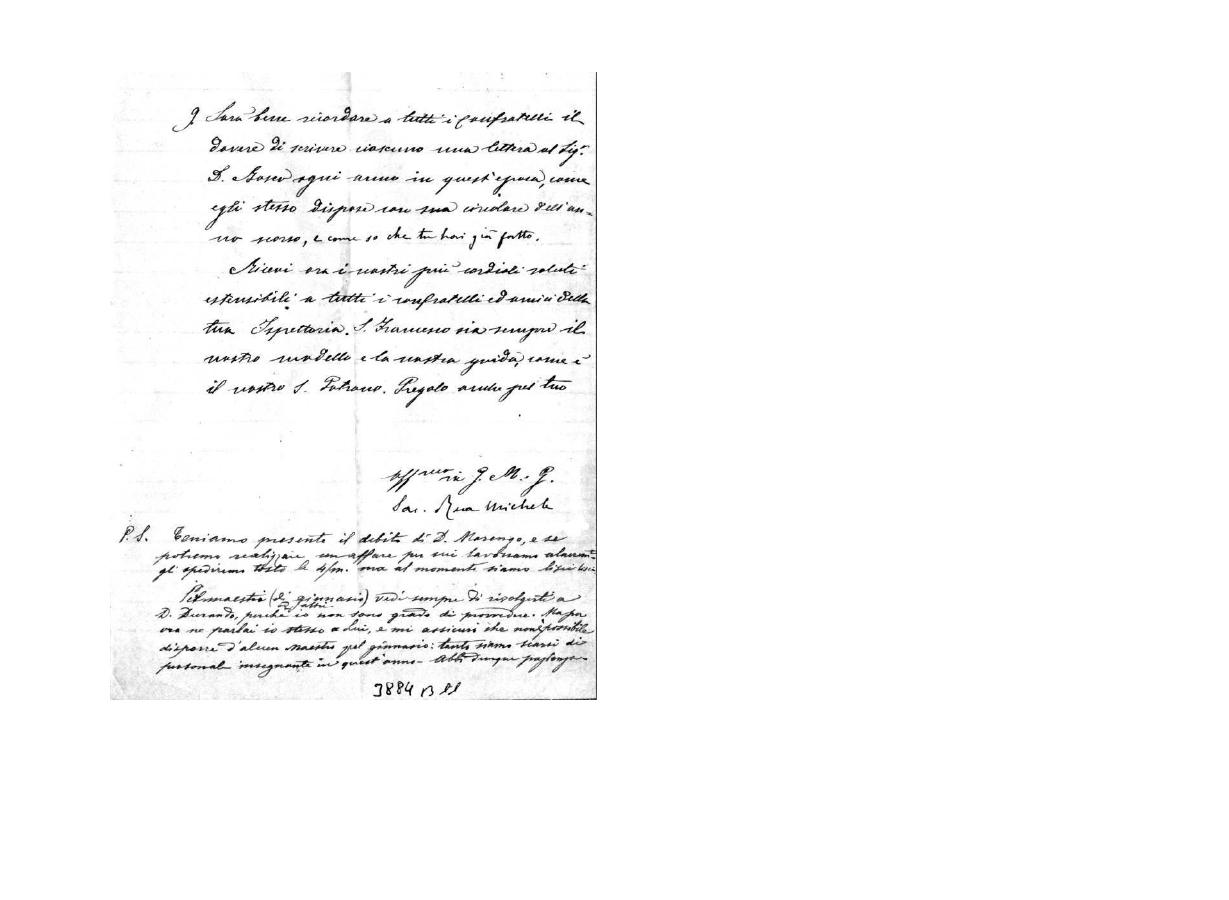 9 Sarà bene ricordare a tutti i Confratelli il
dovere di scrivere ciascuno una lettera al Sigr.
D. Bosco ogni anno in quest'epoca, come
egli stesso dispose con sua circolare dell'an=
no scorso, e come so che tu hai già fatto.
Ricevi ora i nostri più cordiali saluti
estensibili a tutti i confratelli ed amici della
tua Ispettoria. S. Francesco sia sempre il
nostro modello e la nostra guida, come è
il nostro S. Patrono. Pregalo anche pel tuo
Aff.mo in G. M. G.
Sac. Rua Michele
P. S. Teniamo presente il debito di D. Marengo, e se
potremo realizzare un affare per cui lavoriamo
gli spediremo tosto le 4/m. ma al momento siamo
Pei maestri (di ginnasio) vedi sempre di rivolgerti a
ed altri
D. Durando, perché io non sono grado di provvedere. Ma per
ora ne parlai io stesso a Lui, e mi assicurò che non è possibile
disporre d'alcun maestro pel ginnasio: tanto siamo scarsi di
personale insegnante in quest'anno - Abbi dunque
3884 B 11